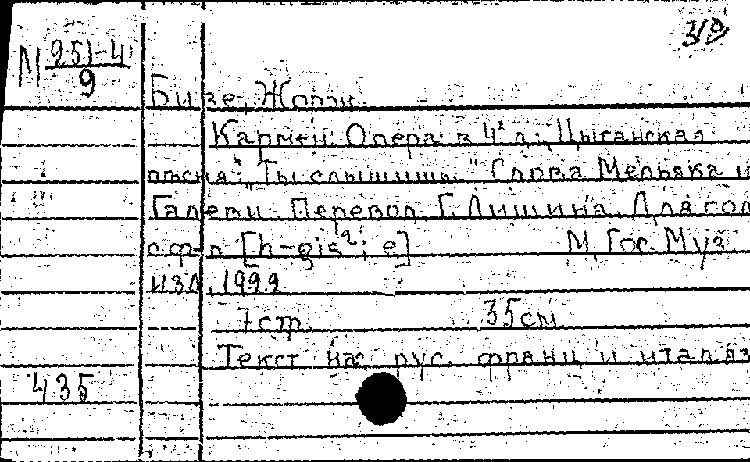 М 251-4/9
319
Бизе, Жорж.
Кармен: Опера в 4 д.: Цыганская
песня: "Ты слышишь" Слова Мельяка и
Галеви. Перевод Г. Лишина. Для гол
с ф-п [h-gis²; e] М. Гос. Муз.
изд,
7 стр. 35 см
Текст на рус. франц и итал яз
435